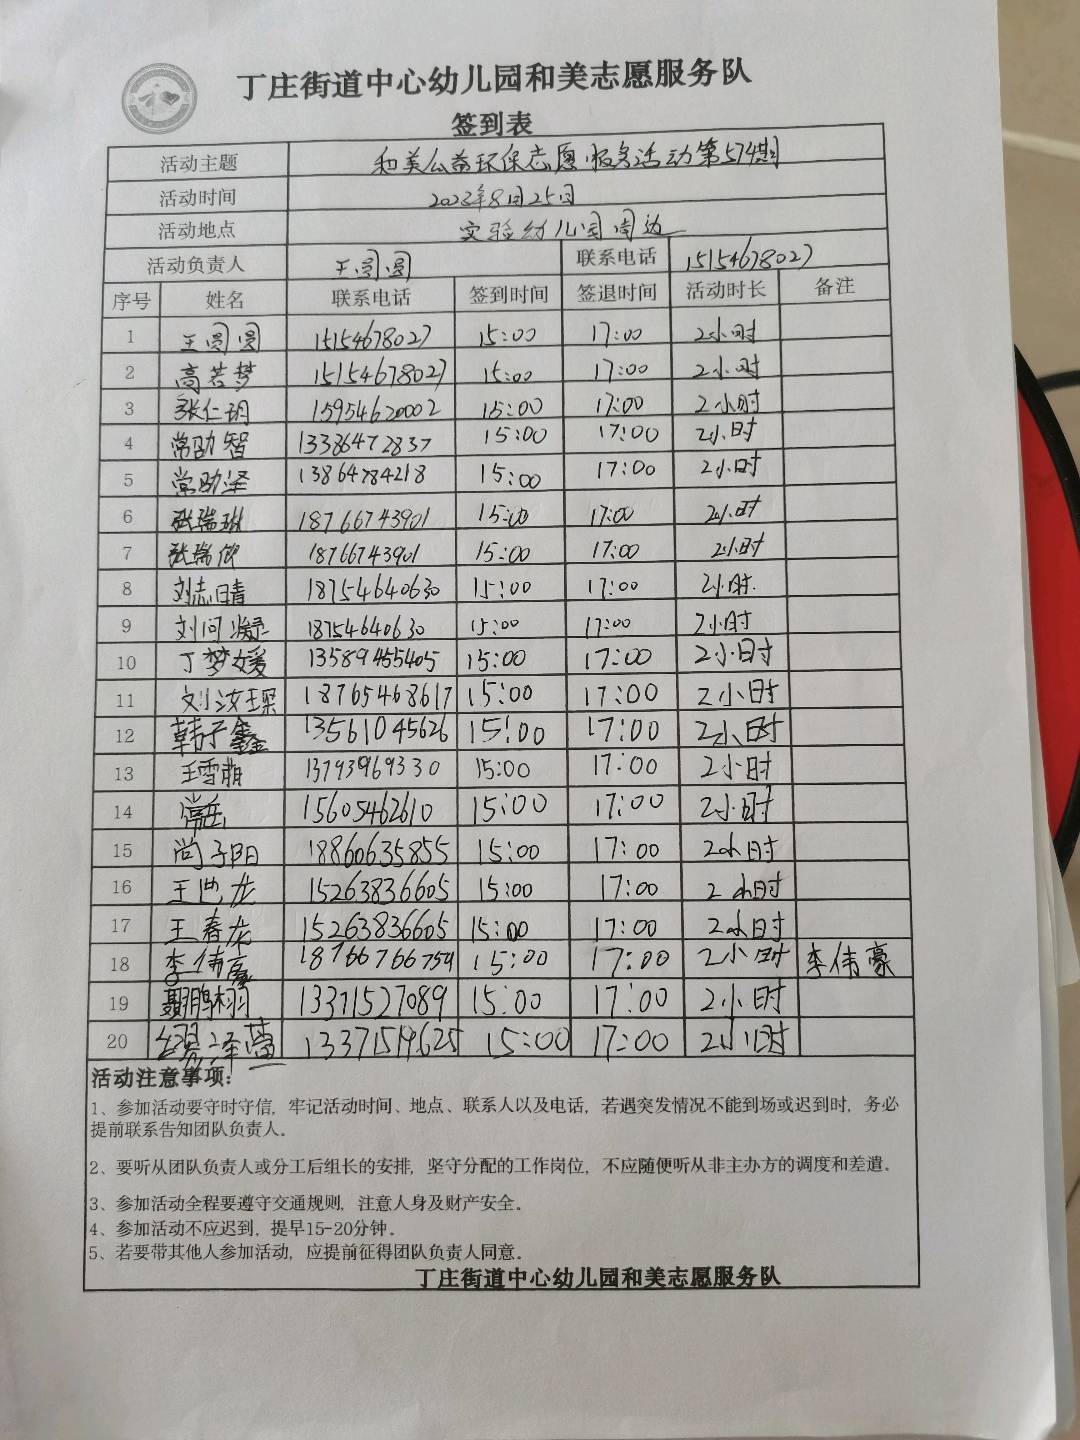 丁庄街道中心幼儿园和美志愿服务队
签到表
活动主题 和美公益环保志愿服务活动第574期
活动时间 2023年8月25日
活动地点 实验幼儿园周边
活动负责人 王圆圆 联系电话 15154678027
序号 姓名 联系电话 签到时间 签退时间 活动时长 备注
1 王圆圆 15154678027 15:00 17:00 2小时
2 高若梦 15154678027 15:00 17:00 2小时
3 张仁玥 15954620002 15:00 17:00 2小时
4 常劭智 13386472837 15:00 17:00 2小时
5 常劭泽 13864784218 15:00 17:00 2小时
6 张瑞琳 18766743901 15:00 17:00 2小时
7 张瑞 18766743901 15:00 17:00 2小时
8 刘志晴 18754640630 15:00 17:00 2小时
9 刘问 18754640630 15:00 17:00 2小时
10 丁梦媛 13589455405 15:00 17:00 2小时
11 刘汝琛 18765468617 15:00 17:00 2小时
12 韩子鑫 13561045626 15:00 17:00 2小时
13 王雪萌 13793969330 15:00 17:00 2小时
14 15605462610 15:00 17:00 2小时
15 尚子阳 18860635855 15:00 17:00 2小时
16 王龙 15263836605 15:00 17:00 2小时
17 王春龙 15263836605 15:00 17:00 2小时
18 李伟豪 18766766759 15:00 17:00 2小时 李伟豪
19 聂鹏栩 13371527089 15:00 17:00 2小时
20 泽 13371519625 15:00 17:00 2小时
活动注意事项:
1、参加活动要守时守信，牢记活动时间、地点、联系人以及电话，若遇突发情况不能到场或迟到时，务必
提前联系告知团队负责人。
2、要听从团队负责人或分工后组长的安排，坚守分配的工作岗位，不应随便听从非主办方的调度和差遣.
3、参加活动全程要遵守交通规则，注意人身及财产安全。
4、参加活动不应迟到，提早15-20分钟。
5、若要带其他人参加活动，应提前征得团队负责人同意。
丁庄街道中心幼儿园和美志愿服务队